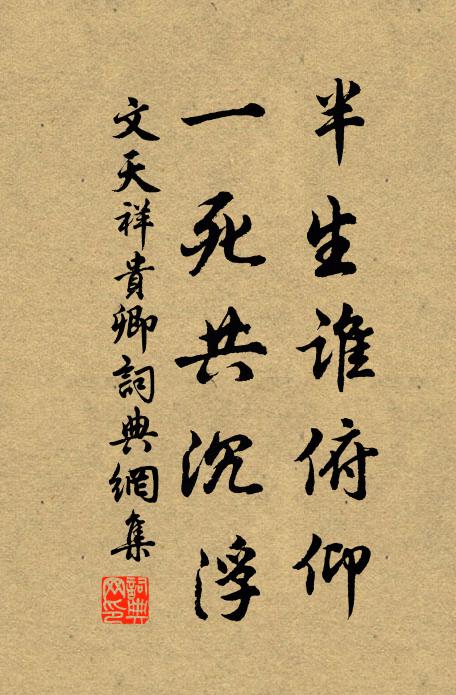 半生誰俯仰
一死共沉浮
文天祥貴卿詞典網集
詞典網印